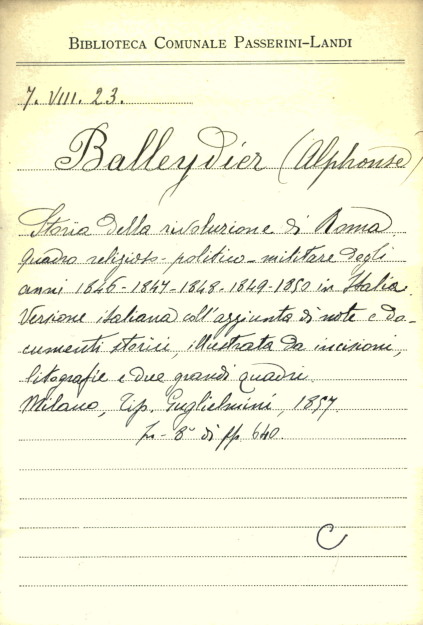 BIBLIOTECA COMUNALE PASSERINI-LANDI
7. VIII. 23.
Balleydier (Alphonse)
Storia della rivoluzione di Roma
quadro religioso-politico-militare degli
anni 1846-1847-1848-1849-1850 in Italia.
Versione italiana coll'aggiunta di note e do-
cumenti storici, illustrata da incisioni,
litografie e due grandi quadri.
Milano, Tip. Guglielmini, 1857.
In-8° di pp. 640.
C